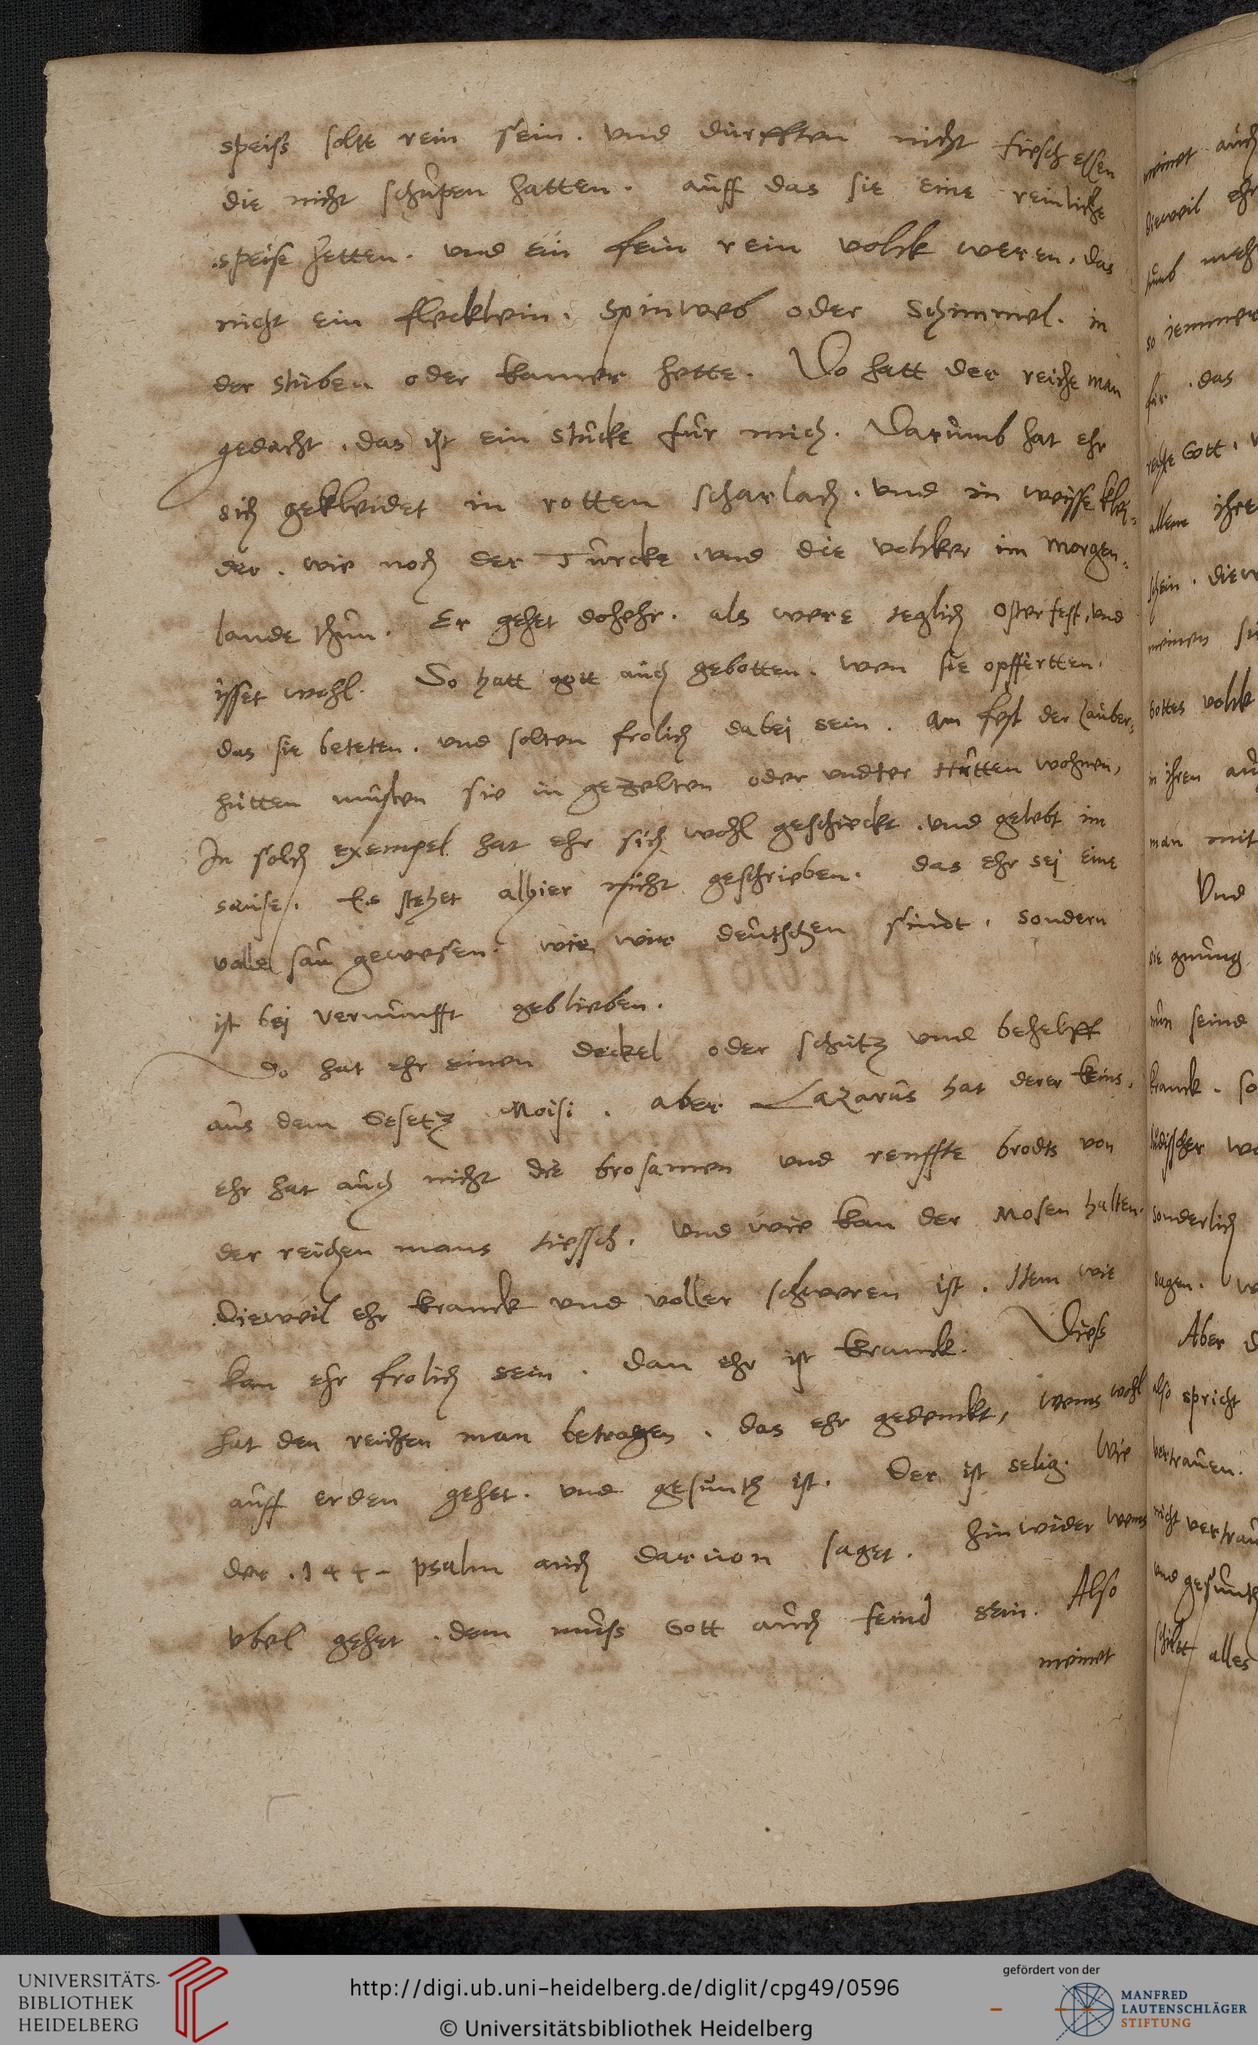 speiss solte rein sein. und durfften nicht fiesch essen
die nicht schupen hatten. auff das sie eine reinliche
speise hetten. und ein fein rein volck weren. das
nicht ein flecklein. spinweb oder schimmel. in
der stuben oder kamer hette. Do hatt der reiche man
gedacht. das ist ein stucke fur mich. Darumb hat ehr
sich gekleidet in rotten scharlach. und in weisse klei-
der. wie noch der Turcke. und die volcker im morgen-
lande thun. Er gehet dohehr. als were teglich osterfest. und
isset wohl. So hatt gott auch gebotten. wen sie opffertten.
das sie beteten. und solten frolich dabej sein. am fest der lauber-
hutten musten sie in gezelten oder undter Hutten wohnen,
In solch exempel hat ehr sich wohl geschickt. und gelebt im
sause. Es stehet alhier nicht geschrieben. das ehr sej eine
volle sau gewesen. wie wir deutschen sindt. sondern
ist bej vernunfft geblieben.
do hat ehr einen deckel oder schutz und behelff
aus dem Gesetz Moisi. aber Lazarus hat derer keins.
ehr hat auch nicht die brosamen und renffte brodts von
der reichen mans tiessch. und wie kan der Mosen halten.
Dieweil ehr kranck und voller schweren ist. Item wie
kan ehr frolich sein. dan ehr ist kranck. Diess
hat den reichen man betrogen. das ehr gedenckt, wems wohl
auff erden gehet. und gesunth ist. Der ist selig. wie
der .144. psalm auch daruon saget. hinwider wems
ubel gehet. dem muss Gott auch feind sein. Also
meinet
meinet auch
dieweil ehr
so iemmer
fur. das
rechte Gott.
allem ihre
schein. diew
meinen
Gottes volck
in ihren
man mit
Und
sie gnung
nun seind
kranck. so
sonderlich
sagen.
Aber d
also spricht
vertrauen.
nicht vertrau
und gesunth
schilt alles
UNIVERSITÄTS-
BIBLIOTHEK
HEIDELBERG
http://digi.ub.uni-heidelberg.de/diglit/cpg49/0596
© Universitätsbibliothek Heidelberg
gefördert von der
MANFRED
LAUTENSCHLÄGER
STIFTUNG